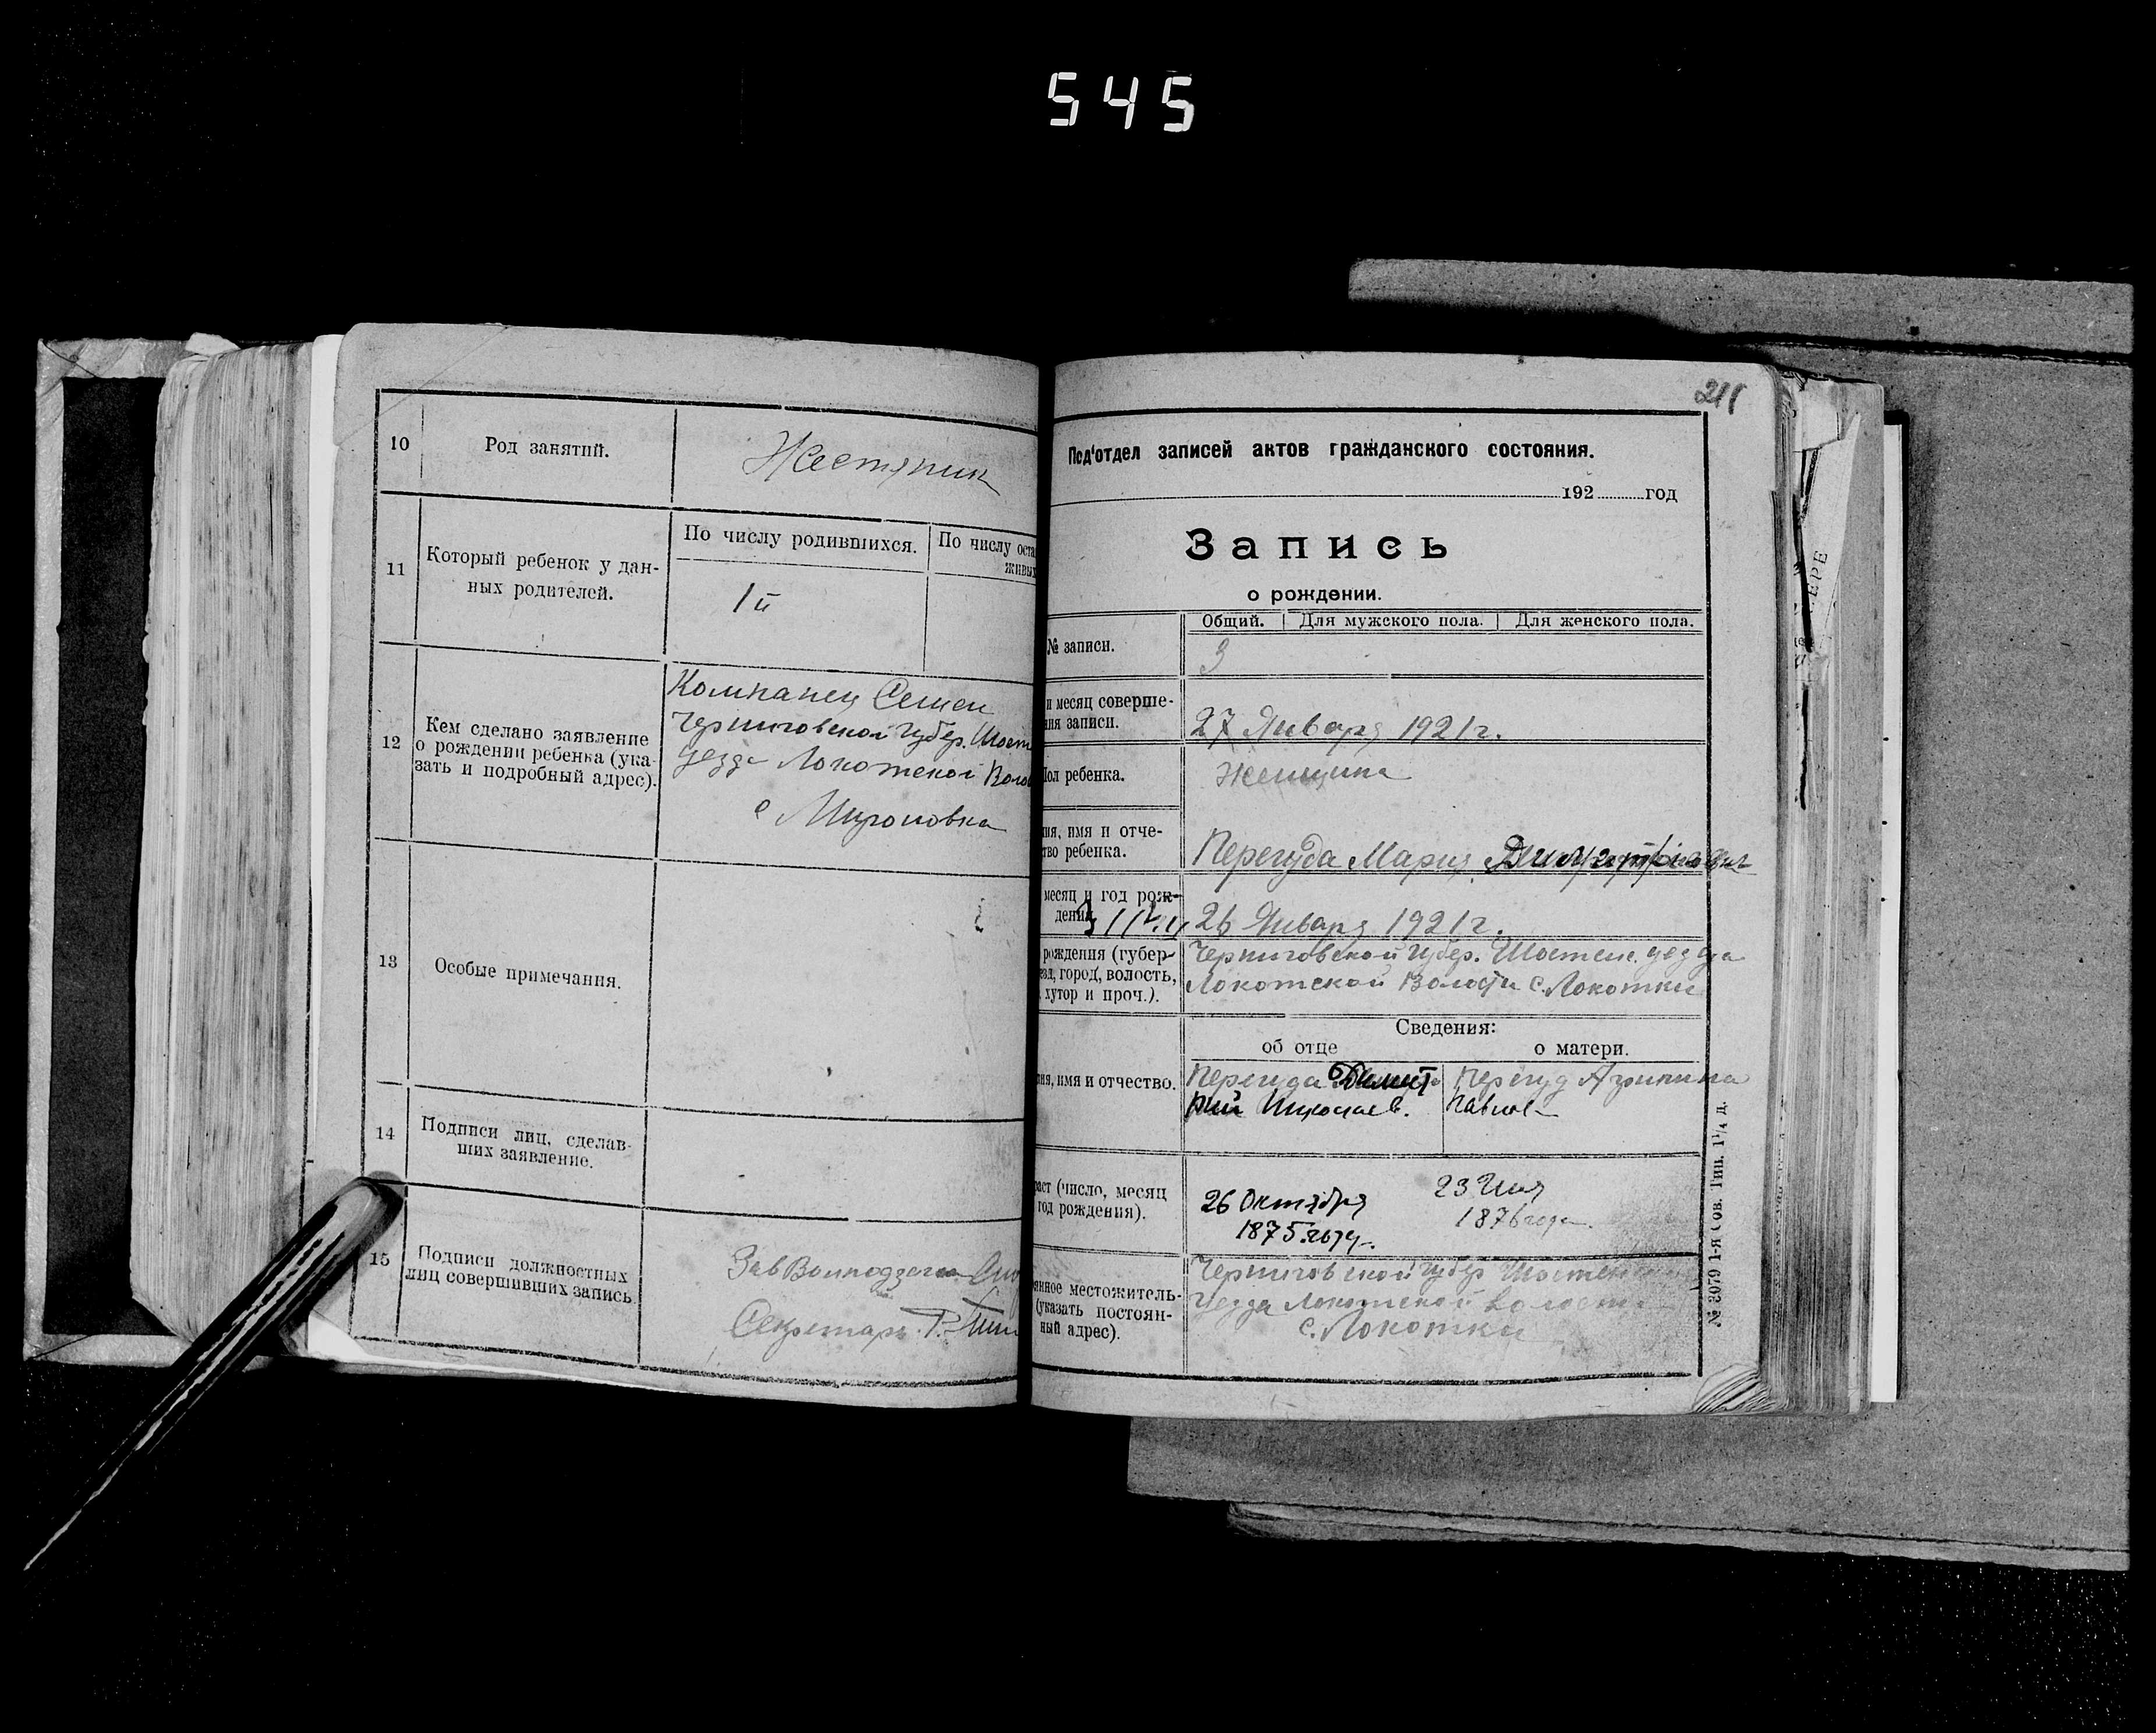 545
10
Род занятий.
Жестяник
11
Который ребенок у дан-
ных родителей.
По числу родившихся.
По числу оста
живых
1й
12
Кем сделано заявление
о рождении ребенка (ука-
зать и подробный адрес).
Компанец Семен
Черниговской Губер. Шост
уезда Локотской Воло
с Мироновка
13
Особые примечания.
14
Подписи лиц, сделав-
ших заявление.
15
Подписи должностных
лиц совершивших запись
Секретарь
211
Под'отдел записей актов гражданского состояния.
192 год
Запись
о рождении.
Общий. Для мужского пола. Для женского пола.
№ записи.
3
и месяц соверше-
ния записи.
27 Января 1921 г.
Пол ребенка.
Женщина
ия, имя и отче-
тво ребенка.
Перегуда Мария
месяц и год рож-
дения
26 Января 1921 г.
рождения (губер-
езд, город, волость,
хутор и проч.).
Черниговской Губер. Шостен. уезда
Локотской Волости с. Локотки
Сведения:
об отце
о матери.
ия, имя и отчество.
Перегуда Димит
рий Николаев.
Перегуд Агрипина
Павлов
раст (число, месяц
год рождения).
26 Октября
1875 году.
23
1876 года.
янное местожитель-
(указать постоян-
ный адрес).
Черниговской Губер Шостен
Уезда Локотской волости
с. Локотки
№ 3079 1-я Сов. Тип. 1¼ д.